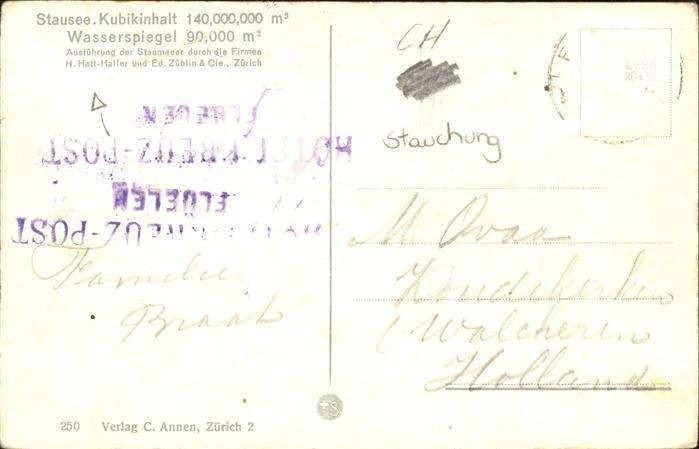 Stausee. Kubikinhalt 140,000,000 m³
Wasserspiegel 90,000 m²
Ausführung der Staumauer durch die Firmen
H. Hatt-Haller und Ed. Züblin & Cie., Zürich
FLUELEN
HOTEL KREUZ-POST
FLUELEN
HOTEL KREUZ-POST
Familie
Braat
CH
Stauchung
M. Ovaa
Koudekerke
(Walcheren
Holland
250 Verlag C. Annen, Zürich 2